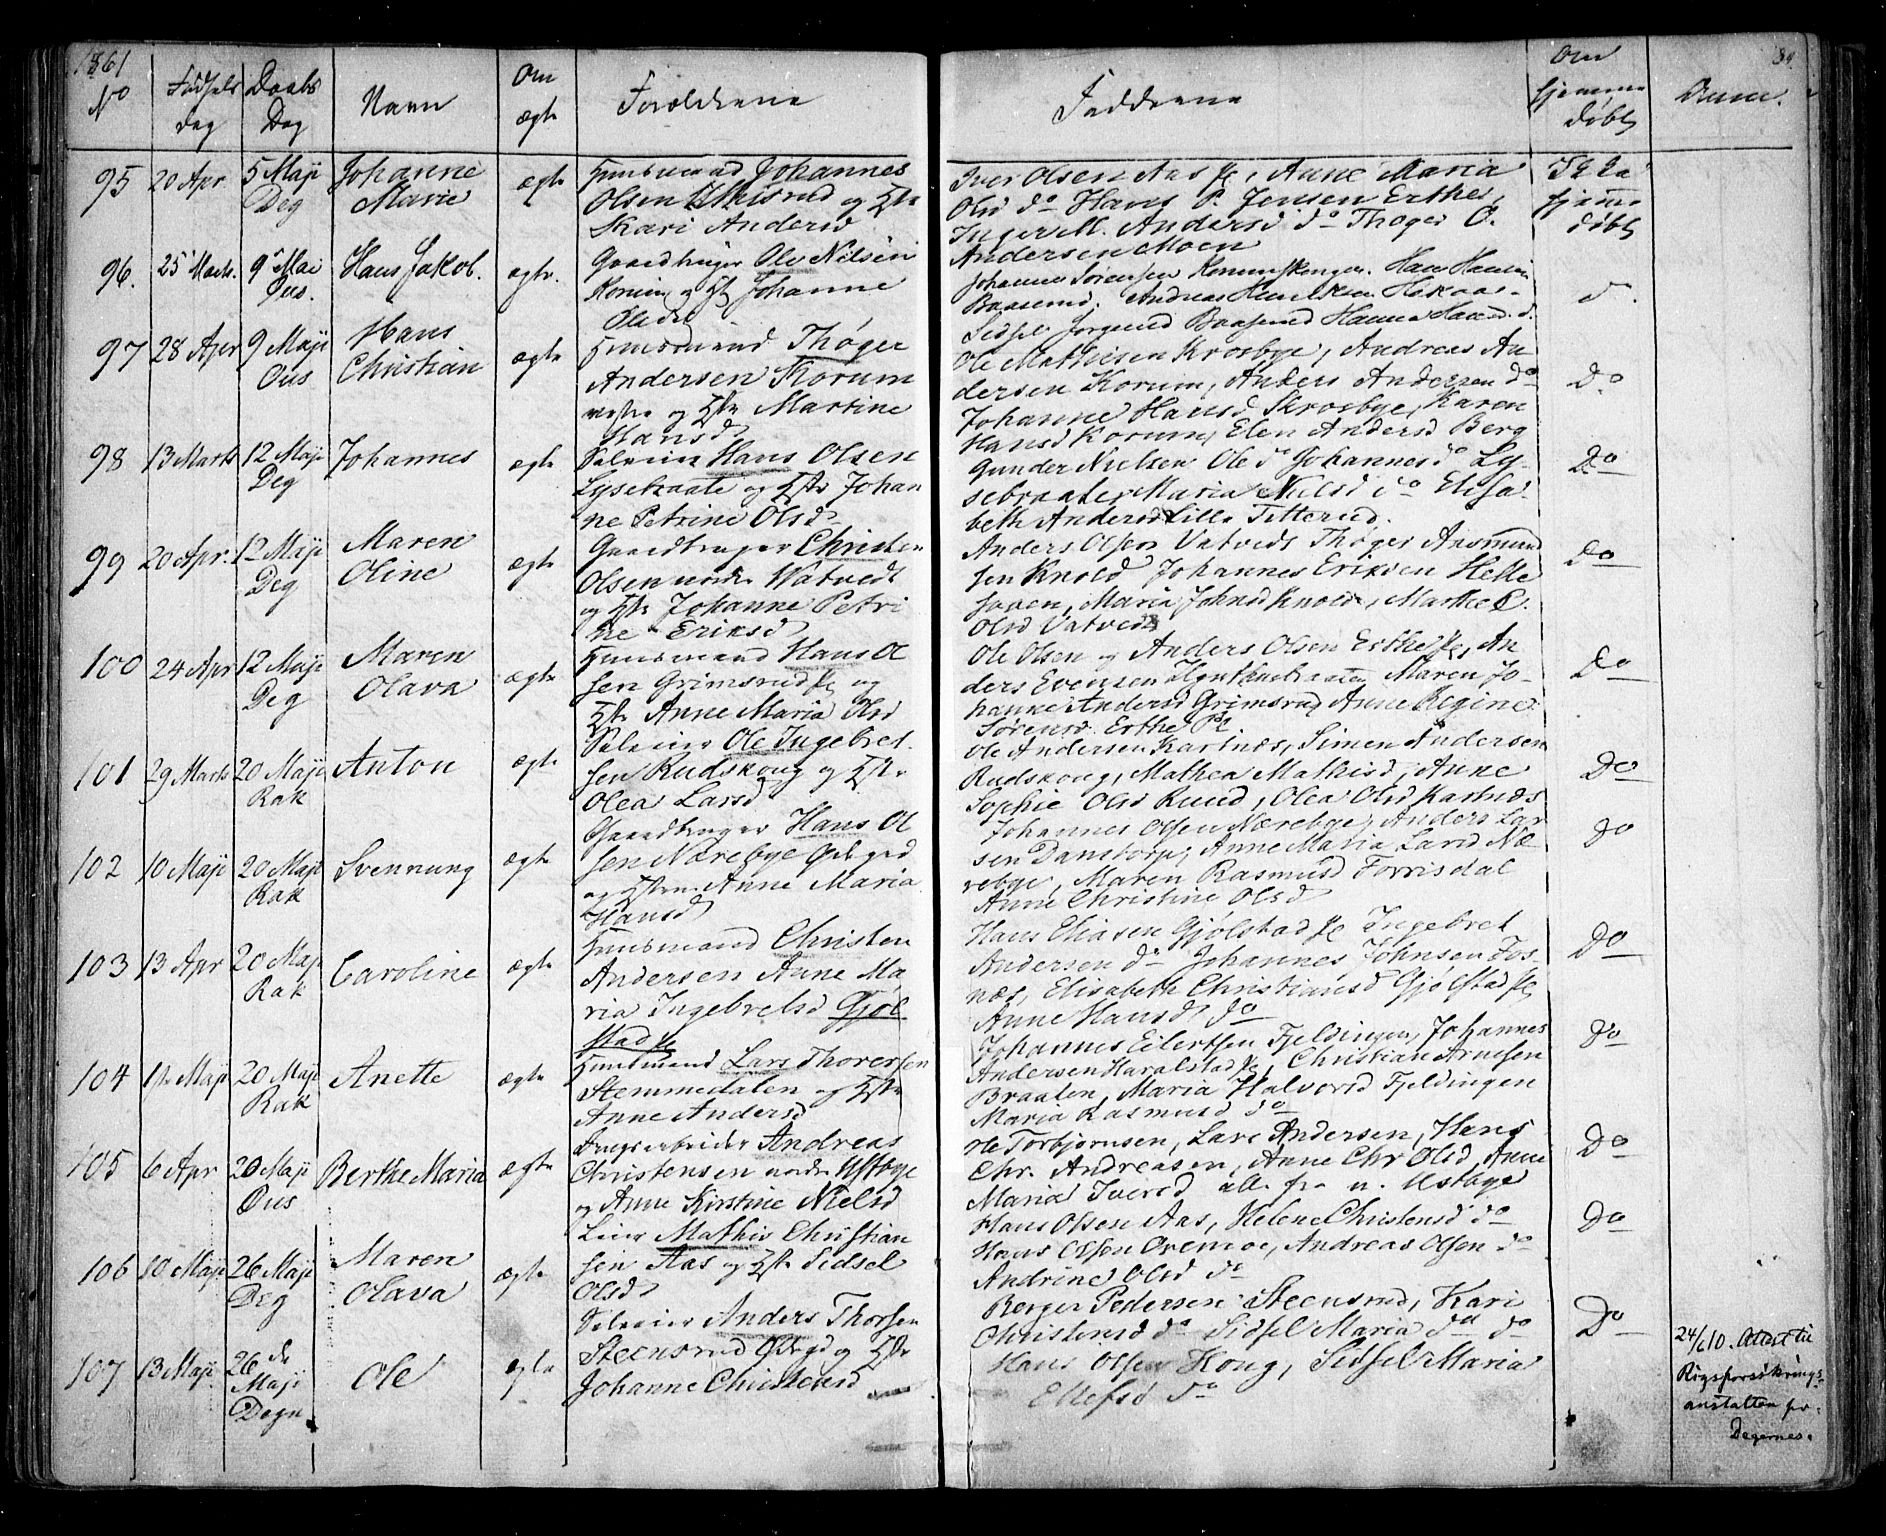 1861
No
Fødsels dag
Daabs Dag
Navn
Om ægte
Forældrene
Fadderne
Om hjemme døbt
Anm.
95 20 Apr. 5 Maji Deg Johanne Marie ægte
Huusmand Johannes
Olsen og Hst
Kari Andersd
Iver Olsen Aas, Anne Maria
Olsd do Hans P. Jensen Erthe,
Inger M. Andersd do Thøger O.
Andersen Moen
hjemme døbt
96. 25 Marts. 9 Mai Øus. Hans Jakob. ægte.
Gaardbruger Ole Nilsen
Korum og H Johanne
Olsd
Johannes Sørensen Hans Hansen
Baaserud, Andreas Henriksen
Sidsel Baaserud
97 28 Apr 9 Maji Øus Hans Christian ægte
Huusmand Thøger
Andersen Korum
vestre og Hst Martine
Hansd
Ole Mathisen Krosbye, Andreas An
dersen Korum, Anders Andersen do
Johanne Hansd Krosbye, Karen
Hansd Korum, Elen Andersd Berg
Do
98 13 Marts 12 Maji Deg Johannes ægte
Selveier Hans Olsen
Lysebraate og Hst Johan
ne Petrine Olsd
Gunder Nielsen Ole do Johannes do Ly-
sebraate, Maria Nielsd do Elisa-
beth Andersd Lille Titterud.
Do
99 20 Apr. 12 Maji Deg Maren Oline ægte
Gaardbruger Christen
Olsen nordre Vatvedt
og Hst Johanne Petri
ne Eriksd
Anders Olsen Vatvedt Thøger Aasmund
sen Knold Johannes Eriksen Helle
, Maria Johnsd Knold, Marthe C.
Olsd Vatvedt
Do
100 24 Apr 12 Maji Deg Maren Olava ægte
Huusmand Hans Ol
sen Grimsrud og
Hst Anne Maria Olsd
Ole Olsen og Anders Olsen Erthe, An
ders Evensen Maren Jo-
hanne Andersd Grimsrud Anne Regine
Sørensd Erthe
Do
101 29 Marts 20 Maji Rak Anton ægte
Selveier Ole Ingebret
sen Rudskoug og Hst
Olea Larsd
Ole Andersen Kastnæs, Simen Andersen
Rudskoug, Mathea Mathisd, Anne
Sophie Olsd Ruud, Olea Olsd Kastnæs
Do
102 10 Maji 20 Maji Rak Svennung ægte
Gaardbruger Hans Ol
sen Nærebye Ødegd
og Hstru Anne Maria
Hansd
Johannes Olsen Nærebye, Anders Lar
sen Danstorp, Anne Maria Larsd Næ
rebye, Maren Rasmusd Forrisdal
Anne Christine Olsd
Do
103 13 Apr 20 Maji Rak Caroline ægte
Huusmand Christen
Andersen Anne Ma
ria Ingebretsd Gjøl
stad
Hans Eliasen Gjølstad Ingebret
Andersen do Johannes Johnsen Fos
næs, Elisabeth Christiansd Gjølstad
Anne Hansd do
Do
104 Maji 20 Maji Rak Anette ægte
Huusmand Lars Thoresen
Stemmedalen og Hst
Anne Andersd
Johannes Eilertsen Fjeldingen, Johannes
Andersen Haralstad, Christian Arnesen
Braaten, Maria Halvorsd Fjeldingen
Maria Rasmusd do
Do
105 6 Apr 20 Maji Øus Berthe Maria ægte
Brugsarbeider Andreas
Christensen nordre Østbye
og Anne Kirstine Nielsd
Ole Torbjørnsen, Lars Andersen, Hans
Chr. Andreasen, Anne Chr Olsd, Anne
Maria Iversd alle fra n. Østbye
Do
106 10 Maji 26 Maji Deg Maren Olava ægte
Leier Mathis Christian
sen Aas og Hst Sidsel
Olsd
Hans Olsen Aas, Helene Christensd do
Hans Olsen Oremoe, Andreas Olsen do
Andrine Olsd do
Do
107 13 Maji 26 de Maji Degn Ole ægte
Selveier Anders Thorsen
Steensrud Ødegd og Hst
Johanne Christensd
Børger Pedersen Steensrud, Kari
Christensd do Sidsel Maria do do
Hans Olsen Houg, Sidsel Maria
Ellefsd do
Do
24/6 10. Attest til
Rigsforsikrings-
anstalten for
Degernes.